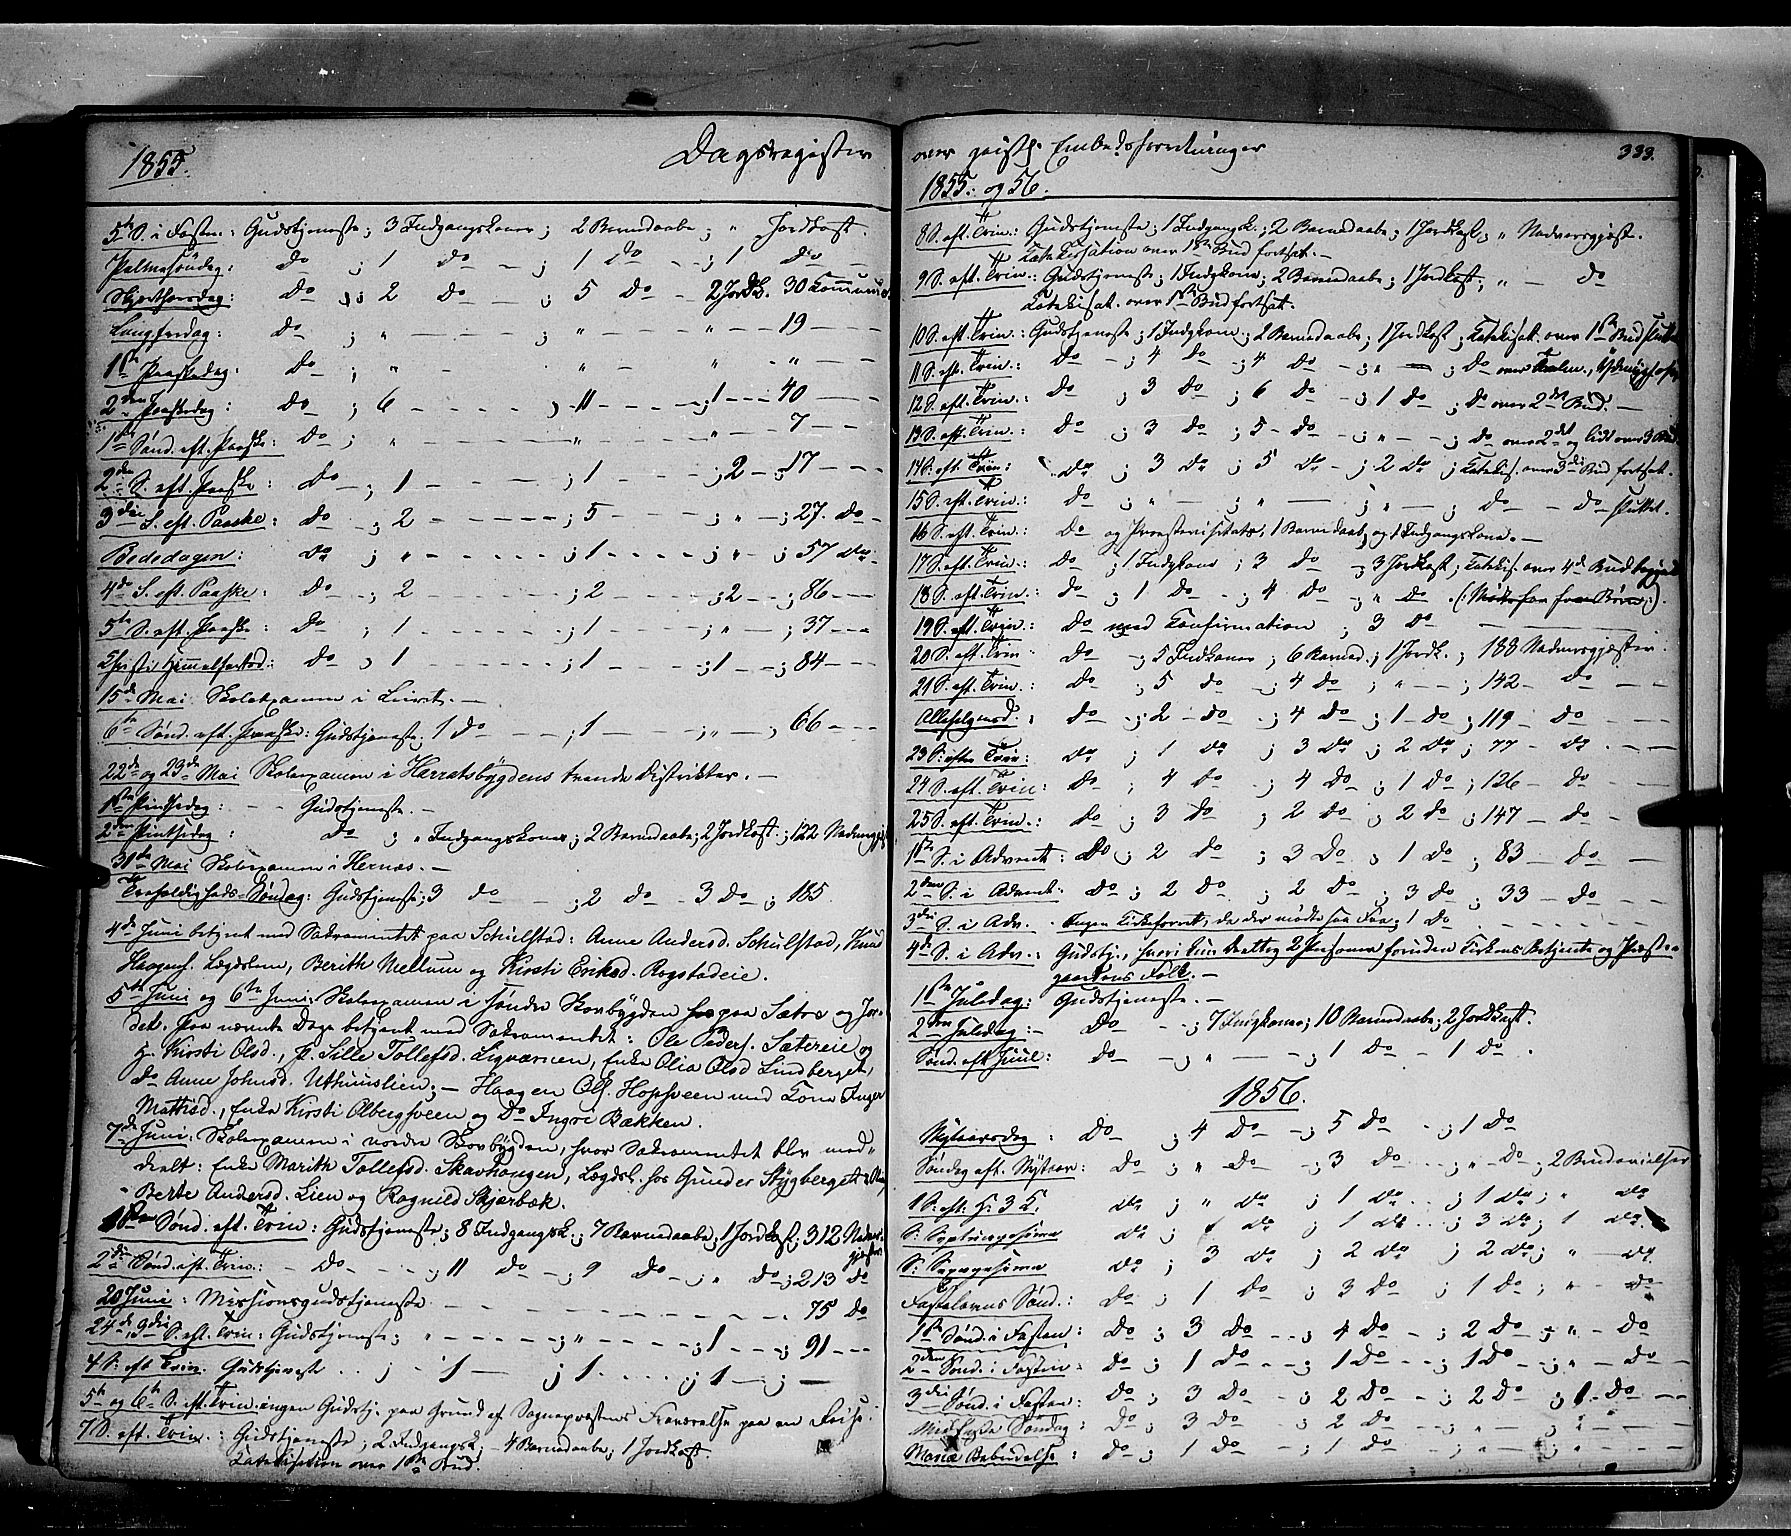 1855.
Dagsregister
5te S. i Fasten: Gudstjeneste; 3 Indgangskoner; 2 Barnedaabe; " Jordkast.
Palmesøndag: Do ; 1 Do — ; 1 Do — 1 Do —
Skjærthorsdag: Do ; 2 Do — ; 5 Do — 2 Jordk. 30 Commun
Langfredag: Do ; " — ; " — " — 19 —
1ste Paaskedag: Do ; " — " — " — " —
2den Paaskedag: Do ; 6 — ; 11 — ; 1 — 40 —
1ste Sønd. eft. Paaske: Do ; " — " — " — 7 —
2den S. eft. Paaske: Do ; 1 — ; 1 — ; 2 — ; 17 —
3die S. eft. Paaske: Do ; 2 — ; 5 — ; " — ; 27 Do —
Bededagen: Do ; " — ; 1 — ; " — ; 57 Do —
4de S. eft. Paaske: Do ; 2 — ; 2 — ; 2 — ; 86 —
5te S. eft. Paaske: Do ; 1 — ; 1 — ; " — ; 37 —
Christi Himmelfartsd.: Do ; 1 — ; 1 — ; 1 — ; 84 —
15de Mai Skoleexamen i —
6te Sønd. eft. Paaske: Gudstjeneste; 1 Do — ; 1 — ; " — ; 66 —
22de og 23de Mai Skoleexamen i Herratsbygdens trende Distrikter. —
1ste Pintsedag: — Gudstjeneste. —
2den Pintsedag: Do ; " Indgangskoner; 2 Barnedaabe; 2 Jordkast; 122 Nadvergj
31te Mai Skoleexamen i Hernæs. —
Trefoldigheds-Søndag: Gudstjeneste; 3 Do — ; 2 Do — 3 Do ; 185.
4de Juni betjent med Sakramentet paa Schulstad: Anne Andersd. Schulstad, Knud
Haagens. Lægdslem, Berith Mellum og Kirsti Eriksd. Rogstadeie.
5te Juni og 6te Juni: Skoleexamen i søndre Skovbygden paa Sætre og
det. Paa nævnte Dage betjent med Sakramentet: Ole Peders. Sætereie og
H. Kirsti Olsd., P. Sille Tollefsd. Ligværnen, Enke Olia Olsd Lindberget,
Do Anne Johnsd. Uthuuslien; — Haagen Ols. Hopsveen med Kone Inger
Mathisd., Enke Kirsti Olbergsveen og Do Ingri Bækken.
7de Juni: Skoleexamen i nordre Skovbygden, hvor Sakramentet blev med-
deelt: Enke Marith Tollefsd. Skavhougen, Lægdsl. hos Gunder Stygberget
Berte Andersd. Lien og Ragnild Skjærbæk.
1ste Sønd. eft. Trin: Gudstjeneste; 8 Indgangsk.; 7 Barnedaabe; 1 Jordkast; 312 Nadver-
gjester
2den Sønd. eft. Trin: — Do — ; 11 Do — ; 9 Do — ; " Do ; 213 Do
20 Juni: Missionsgudstjeneste — 75 Do
24de 3die S. eft. Trin: Gudstjeneste; " — ; " — ; 1 — 91 —
4 S. eft. Trin. Gudstjeneste ; 1 — ; 1 — ; 1 — ; —
5te og 6te S. eft. Trin. ingen Gudstj. paa Grund af Sognepræstens Fraværelse paa en Reise.
7 S. eft. Trin.: Gudstjeneste; 2 Indgangsk; 4 Barnedaabe; 1 Jordkast.
Catekisation over 1ste Bud.
over geistl. Embedsforretninger
333.
1855 og 56.
8 S. eft. Trin.: Gudstjeneste; 1 Indgangsk.; 2 Barnedaabe; 1 Jordkast; " Nadvergjæst.
Catekisation over 1ste Bud fortsat.
9 S. eft. Trin.: Gudstjeneste; 1 Indgkone; 2 Barnedaabe; 1 Jordkast; " — Do
Catekisat. over 1ste Bud fortsat.
10 S. eft. Trin.: Gudstjeneste; 1 Indgkone; 2 Barnedaabe; 1 Jordkast; Catekisat. over 1ste Bud sluttet
11 S. eft. Trin.: Do — ; 4 Do ; 4 Do — ; " — ; Do over
12 S. eft. Trin.: Do ; 3 Do ; 6 Do — ; 1 Do ; Do over 2det Bud. —
13 S. eft. Trin.: Do ; 3 Do ; 5 Do — ; " — ; Do over 2det og lidt over 3 Bud
14 S. eft. Trin: Do ; 3 Do ; 5 Do — ; 2 Do ; Catekis. over 3die Bud fortsat.
15 S. eft. Trin.: Do ; " — ; " — ; " — ; Do — Do sluttet.
16 S. eft. Trin.: Do og Provstevisitats, 1 Barnedaab og 1 Indgangskone. —
17 S. eft. Trin.: Do ; 1 Indgkone ; 3 Do ; 3 Jordkast ; Catekis. over 4de Bud begyndt
18 S. eft. Trin.: Do ; 1 Do ; 4 Do ; " Do. (: Mødte faa fra Børn :)
19 S. eft. Trin.: Do med Confirmation ; 3 Do —
20 S. eft. Trin: Do — ; 5 Indkoner ; 6 Barned.; 1 Jordk. ; 188 Nadvergjæster.
21 S. eft. Trin.: Do ; 5 Do — ; 4 Do ; " — ; 142 — Do —
Allehelgensd.: Do ; 2 — Do ; 4 Do ; 1 Do ; 119 — Do —
23 S. efter Trin: Do ; 1 Do ; 3 Do ; 2 Do ; 77 — Do —
24 S. eft. Trin: Do ; 4 Do — ; 4 Do ; 1 Do ; 126 — Do —
25 S. eft. Trin.: Do ; 3 Do ; 2 Do ; 2 Do ; 147 — Do —
1ste S. i Advent: Do ; 2 Do ; 3 Do ; 1 Do ; 83 — Do —
2den S. i Advent. Do ; 2 Do ; 2 Do ; 3 Do ; 33 — Do —
3die S. i Adv. — Ingen Kirkeforret., da der mødte saa Faa; 1 Do —
4de S. i Adv.: Gudstj., hvori kun deeltog 2 Personer foruden Kirkens Betjente og Præste-
gaardens Folk. —
1ste Juledag: Gudstjeneste. —
2den Juledag: — Do — ; 7 Indgkoner; 10 Barnedaabe; 2 Jordkast.
Sønd. eft. Juul: Do — ; " — ; 1 Do — 1 Do.
1856.
Nytaarsdag: Do — ; 4 Do — ; 5 Do — ; 1 Do
Søndag eft. Nytaar: Do — ; " Do — ; 3 Do ; " Do ; 2 Brudevielser
1 S. eft. H. 3 K. Do ; " Do ; 1 Do ; 1 Do ; " Do
S. Septuagesima Do ; 1 Do ; 1 Do ; 3 Do ; 1 Do.
S. Sexagesima Do ; 3 Do ; 2 Do ; 2 Do ; " — Do.
Fastelavns Sønd.: Do ; 1 Do ; 3 Do ; 1 Do ; " — Do
1ste Sønd. i Fasten: Do ; 3 Do — ; 4 Do — ; 2 Do ; " — Do
2den Sønd. i Fasten: Do ; 1 Do — ; 1 Do — ; 1 Do — ; " — Do —
3die Sønd. i Fasten: Do ; 3 Do — ; 2 Do — ; 2 Do ; 1 Do —
Midfaste Søndag: Do ; 3 Do — ; 2 Do — ; " —
Mariæ Bebudelse: Do ; 1 Do — ; 1 Do — ; " —